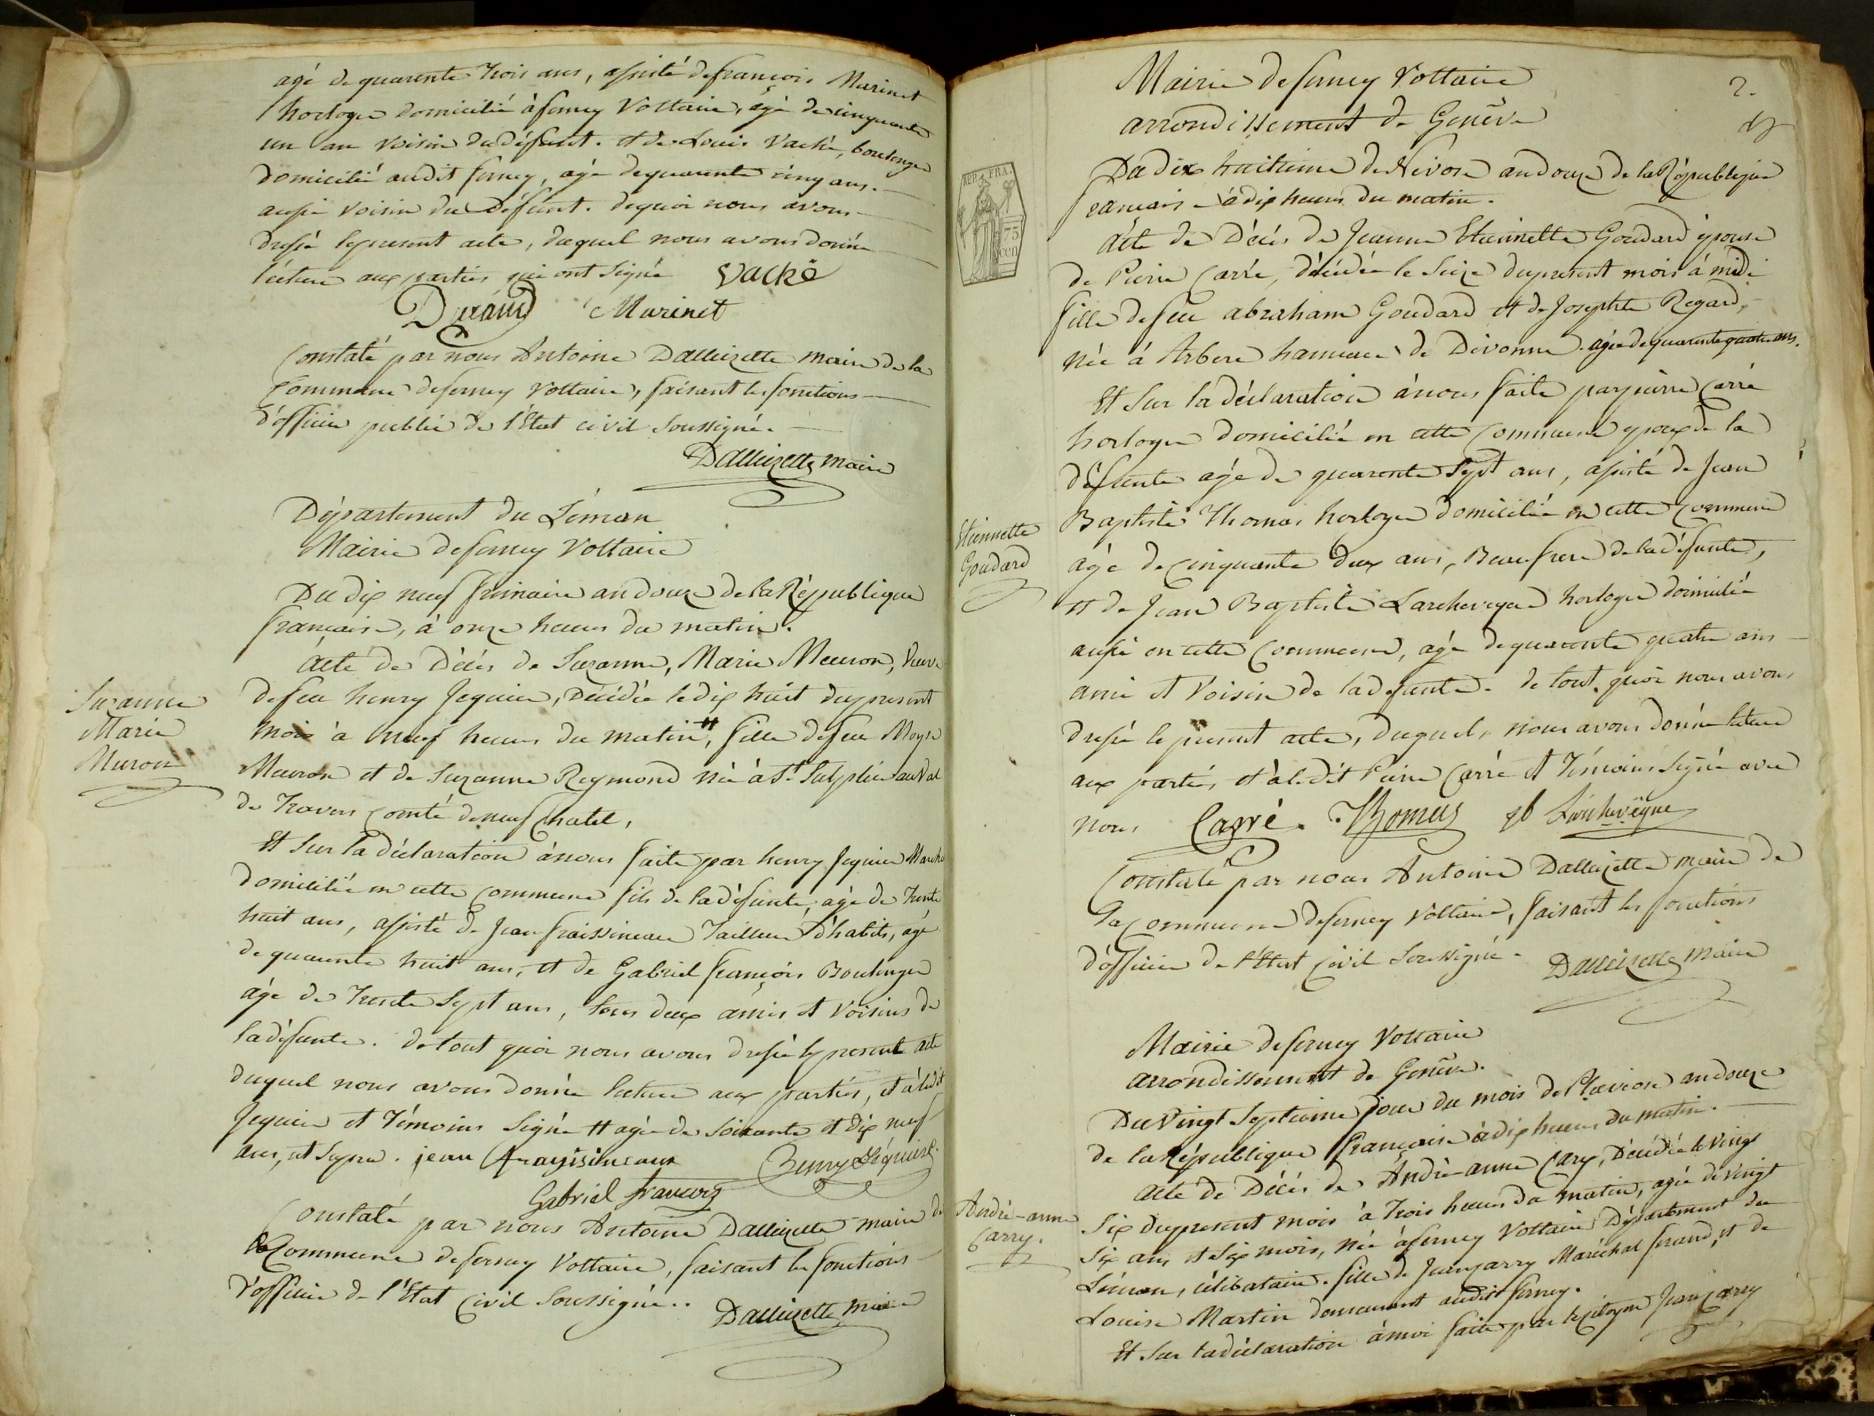 agé de quarente trois ans, assisté de françois Marinet
horloger domicilié à ferney Voltaire, agé de cinquante
un an voisin du défunt. et de Louis Vaché, boulenger
domicilié audit ferney, agé de quarente cinq ans.
aussi voisin du défunt. de quoi nous avons
dressé le present acte, duquel nous avons donné
lecture aux parties qui ont signé Vaché
Durand Marinet
Constaté par nous Antoine Dalleizette maire de la
Commune de ferney Voltaire, faisant les fonctions
d'officier public de l'Etat civil soussigné.
Dalleizette maire
Département du Léman
Mairie de ferney Voltaire
Du dix neuf frimaire an douze de la République
française, à onze heures du matin.
Acte de Décès de Suzanne, Marie Meuron, veuve
de feu henry Jequier, décédée le dix huit du present
mois à neuf heures du matin #, fille de feu Moyse
Meuron et de Suzanne Reymond née à St. Sulplice au Val
de Travers Comté de neuf Chatel,
Suzanne
Marie
Muron
Et sur la déclaration à nous faite par henry Jequier
domicilié en cette Commune fils de la défunte, agé de trente
huit ans, assisté de Jean fraissineau Tailleur d'habits, agé
de quarente huit ans, et de Gabriel françois Boulenger
agé de trente sept ans, tous deux amis et voisins de
la défunte. de tout quoi nous avons dressé le present acte
duquel nous avons donné lecture aux parties, et a ledit
Jequier et témoins signé # agée de soixante et dix neuf
ans, et signé. jean frayssineaux Henry Jéquier
Gabriel francois
Constaté par nous Antoine Dalleizette maire de
la Commune de ferney Voltaire, faisant les fonctions
d'officier de l'Etat Civil soussigné..
Dalleizette maire
2.
Mairie de ferney Voltaire
arrondissement de Genêve
REP. FRA.
75
Du dix huitieme de Nivose an douze de la République
francaise à dix heures du matin.
Acte de Décès de Jeanne Etiennette Goudard épouse
de Pierre Carré, décédée le seize du present mois à midi
fille de feu abraham Goudard et de Josephte Regard,
née à Arbere hameau de Divonne. agée de quarente quatre ans.
Et sur la déclaration à nous faite par pierre Carré
horloger domicilié en cette Commune époux de la
défunte agé de quarente sept ans, assisté de Jean
Baptiste Thomas horloger domicilié en cette Commune
agé de cinquante deux ans, Beau frere de la défunte,
Etiennette
Goudard
et de Jean Baptiste Larcheveque horloger domicilié
aussi en cette Commune, agé de quarente quatre ans
ami et voisin de la defunte. de tout quoi nous avons
dressé le present acte, duquel, nous avons donné lecture
aux parties, et a le dit Pierre Carré et témoins signé avec
nous Carré. Thomas jb Larchevêque
Constaté par nous Antoine Dalleizette maire de
la Commune de ferney Voltaire, faisant les fonctions
d'officier de l'Etat Civil soussigné.
Dalleizette maire
Mairie de ferney Voltaire
arrondissement de Genêve.
Du vingt septieme jour du mois de Pluviose an douze
de la République française à dix heures du matin.
Acte de Décès de André-anne Cary, décédée le vingt
six du present mois à trois heures du matin, agée de vingt
six ans et six mois, née à ferney Voltaire Département du
Léman, célibataire. fille de Jean Carry Maréchal ferand, et de
Louise Martin demeurant audit ferney.
André-anne
Carry.
Et sur la déclaration à moi faite par le citoyen Jean Carry